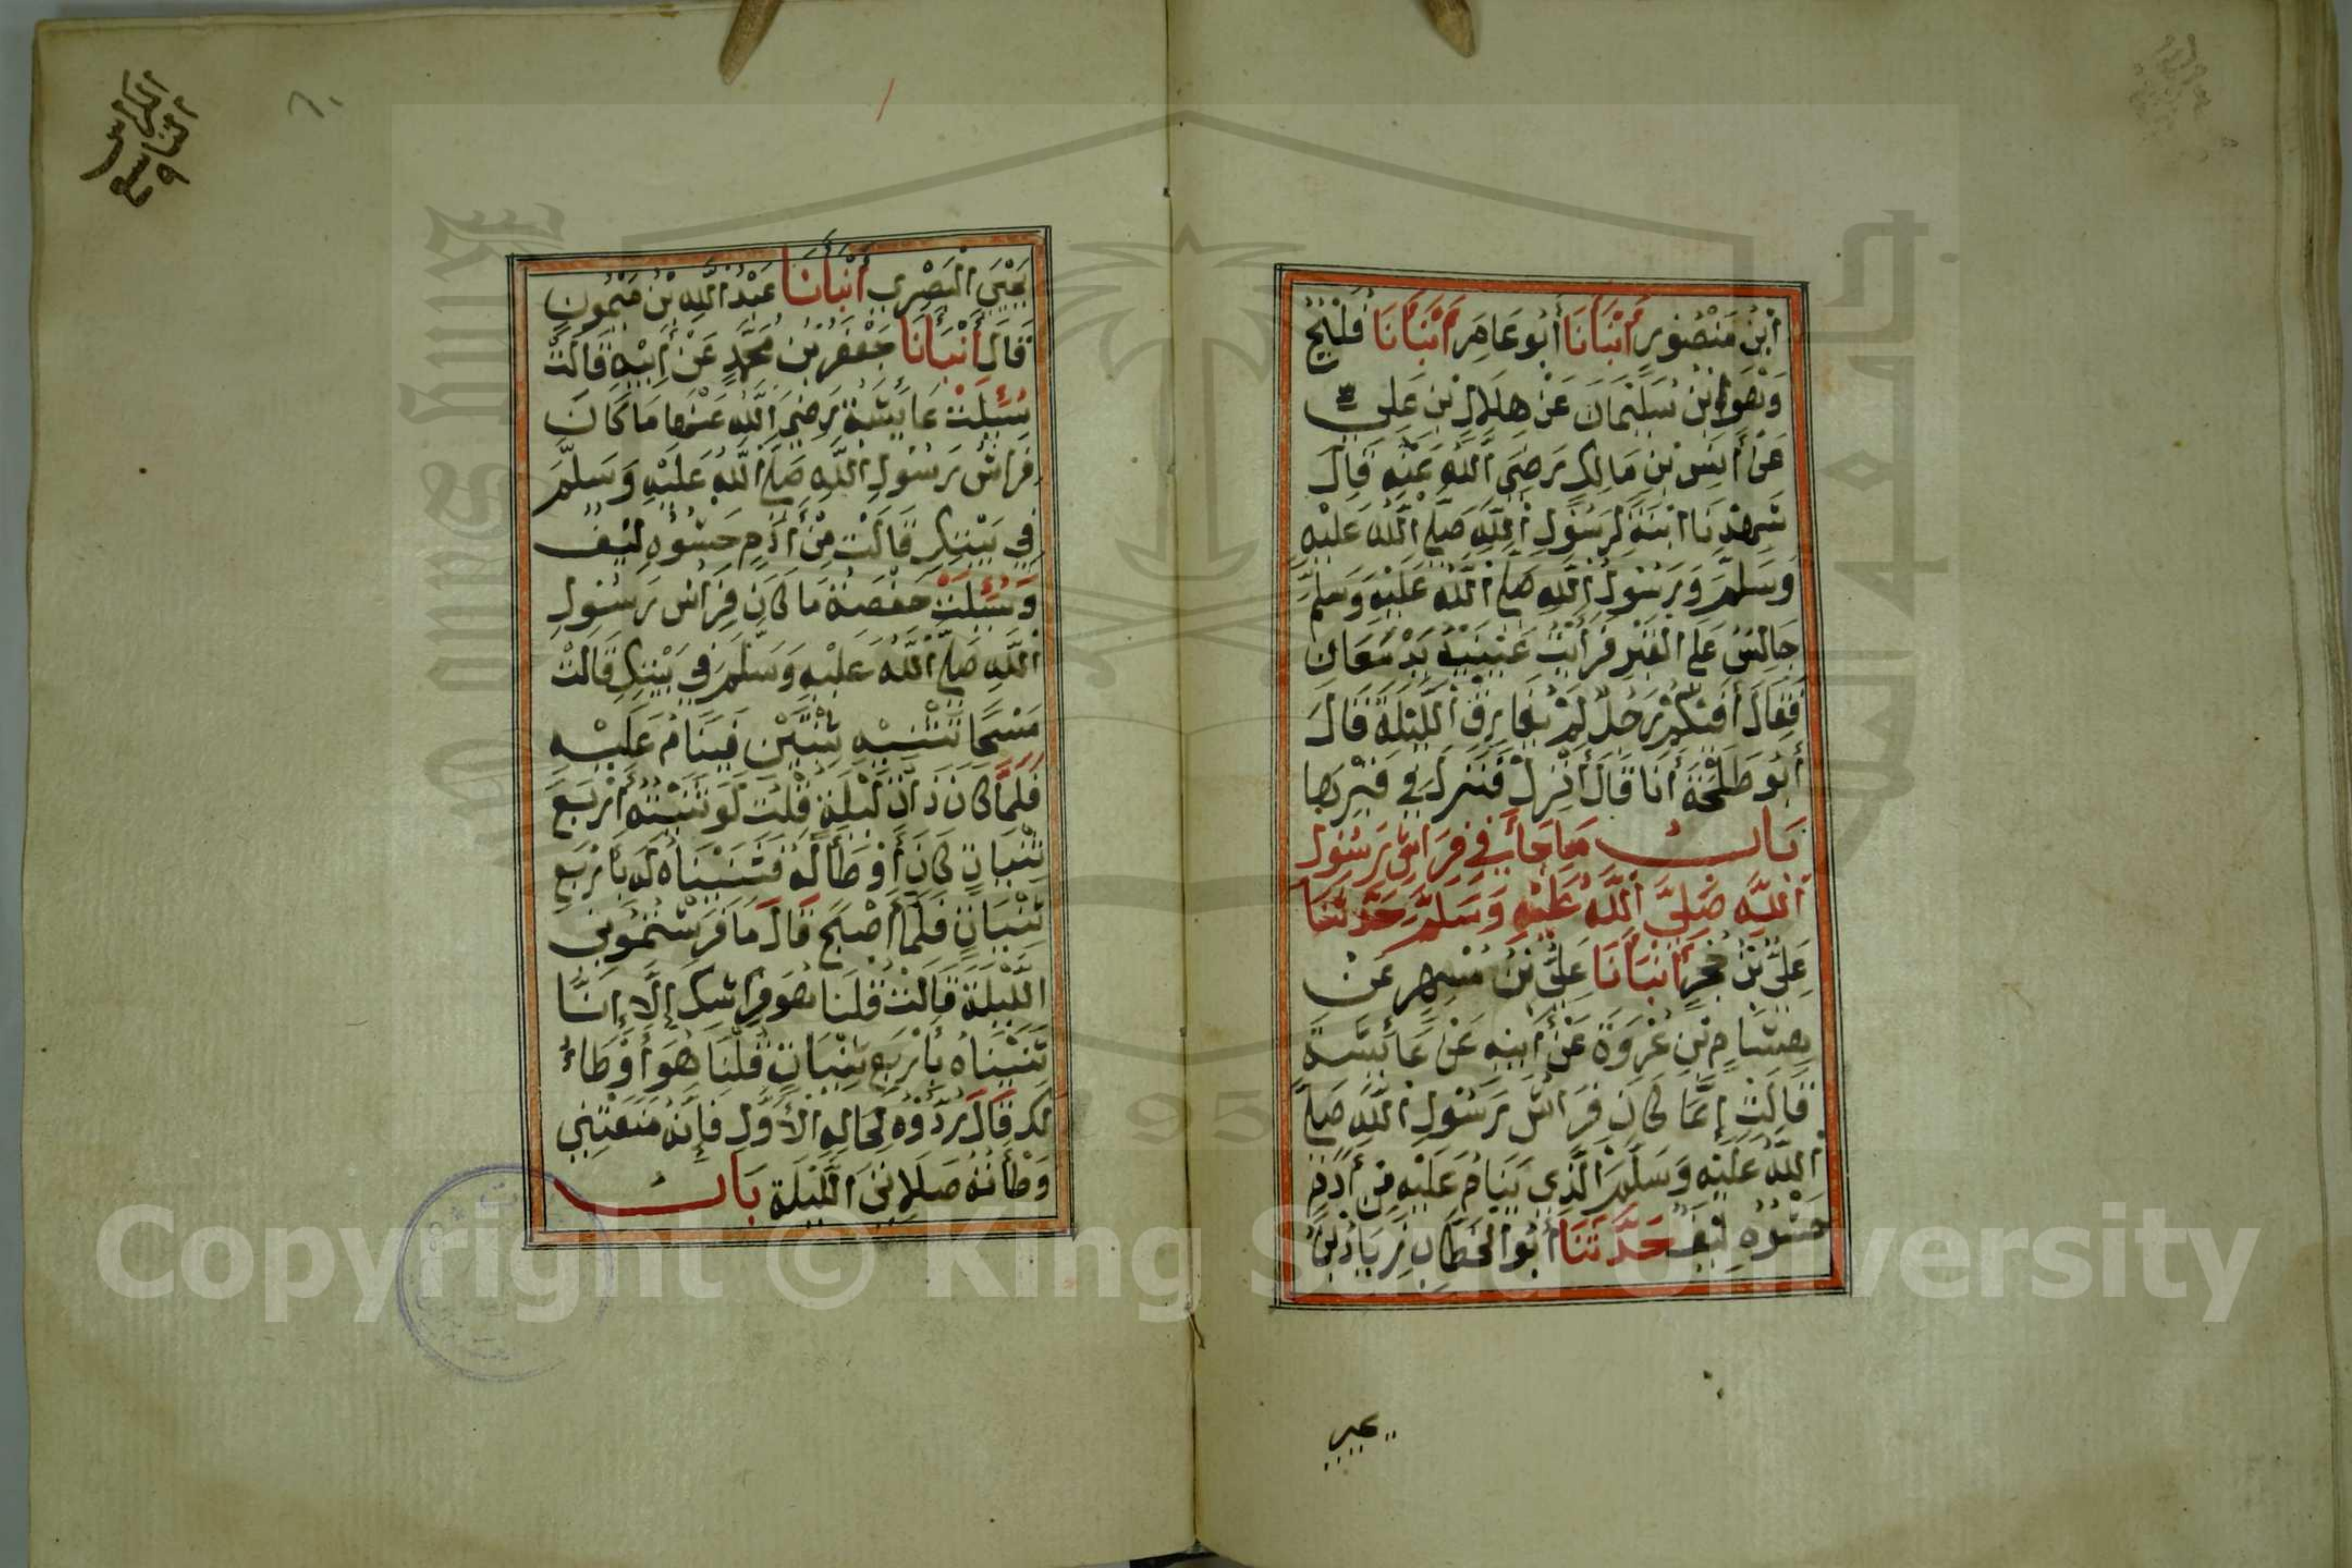 اِبْنُ مَنْصُورٍ أَنْبَأَنَا أَبُو عَامِرٍ أَنْبَأَنَا فُلَيْحُ
وَهُوَ ابْنُ سُلَيْمَانَ عَنْ هِلَالِ بْنِ عَلِيٍّ
عَنْ أَنَسِ بْنِ مَالِكٍ رَضِيَ اللَّهُ عَنْهُ قَالَ
شَهِدْنَا ابْنَةً لِرَسُولِ اللَّهِ صَلَّى اللَّهُ عَلَيْهِ
وَسَلَّمَ وَرَسُولُ اللَّهِ صَلَّى اللَّهُ عَلَيْهِ وَسَلَّمَ
جَالِسٌ عَلَى الْقَبْرِ فَرَأَيْتُ عَيْنَيْهِ تَدْمَعَانِ
فَقَالَ أَفِيكُمْ رَجُلٌ لَمْ يُقَارِفِ اللَّيْلَةَ قَالَ
أَبُو طَلْحَةَ أَنَا قَالَ أَنْزِلْ فَنَزَلَ فِي قَبْرِهَا
بَابُ مَا جَاءَ فِي فِرَاشِ رَسُولِ
اللَّهِ صَلَّى اللَّهُ عَلَيْهِ وَسَلَّمَ حَدَّثَنَا
عَلِيُّ بْنُ حُجْرٍ أَنْبَأَنَا عَلِيُّ بْنُ مُسْهِرٍ عَنْ
هِشَامِ بْنِ عُرْوَةَ عَنْ أَبِيهِ عَنْ عَائِشَةَ
قَالَتْ إِنَّمَا كَانَ فِرَاشُ رَسُولِ اللَّهِ صَلَّى
اللَّهُ عَلَيْهِ وَسَلَّمَ الَّذِي يَنَامُ عَلَيْهِ مِنْ أَدَمٍ
حَشْوُهُ لِيفٌ حَدَّثَنَا أَبُو الْخَطَّابِ زِيَادُ بْنُ
يحيى
الكراس
التاسع
٩
يَحْيَى الْبَصْرِيُّ أَنْبَأَنَا عَبْدُ اللَّهِ بْنُ مَيْمُونٍ
قَالَ أَنْبَأَنَا جَعْفَرُ بْنُ مُحَمَّدٍ عَنْ أَبِيهِ قَالَتْ
سُئِلَتْ عَائِشَةُ رَضِيَ اللَّهُ عَنْهَا مَا كَانَ
فِرَاشُ رَسُولِ اللَّهِ صَلَّى اللَّهُ عَلَيْهِ وَسَلَّمَ
فِي بَيْتِكِ قَالَتْ مِنْ أَدَمٍ حَشْوُهُ لِيفٌ
وَسُئِلَتْ حَفْصَةُ مَا كَانَ فِرَاشُ رَسُولِ
اللَّهِ صَلَّى اللَّهُ عَلَيْهِ وَسَلَّمَ فِي بَيْتِكِ قَالَتْ
مَسْحًا نَثْنِيهِ ثِنْيَتَيْنِ فَيَنَامُ عَلَيْهِ
فَلَمَّا كَانَ ذَاتَ لَيْلَةٍ قُلْتُ لَوْ ثَنَيْتُهُ أَرْبَعَ
ثِنْيَاتٍ كَانَ أَوْطَأَ لَهُ فَثَنَيْنَاهُ لَهُ بِأَرْبَعِ
ثِنْيَاتٍ فَلَمَّا أَصْبَحَ قَالَ مَا فَرَشْتُمُونِي
اللَّيْلَةَ قَالَتْ قُلْنَا هُوَ فِرَاشُكَ إِلَّا إِنَّا
ثَنَيْنَاهُ بِأَرْبَعِ ثِنْيَاتٍ قُلْنَا هُوَ أَوْطَأُ
لَكَ قَالَ رُدُّوهُ لِحَالِهِ الْأَوَّلِ فَإِنَّهُ مَنَعَتْنِي
وَطْأَتُهُ صَلَاتِي اللَّيْلَةَ بَابُ
Copyright © King Saud University
1957